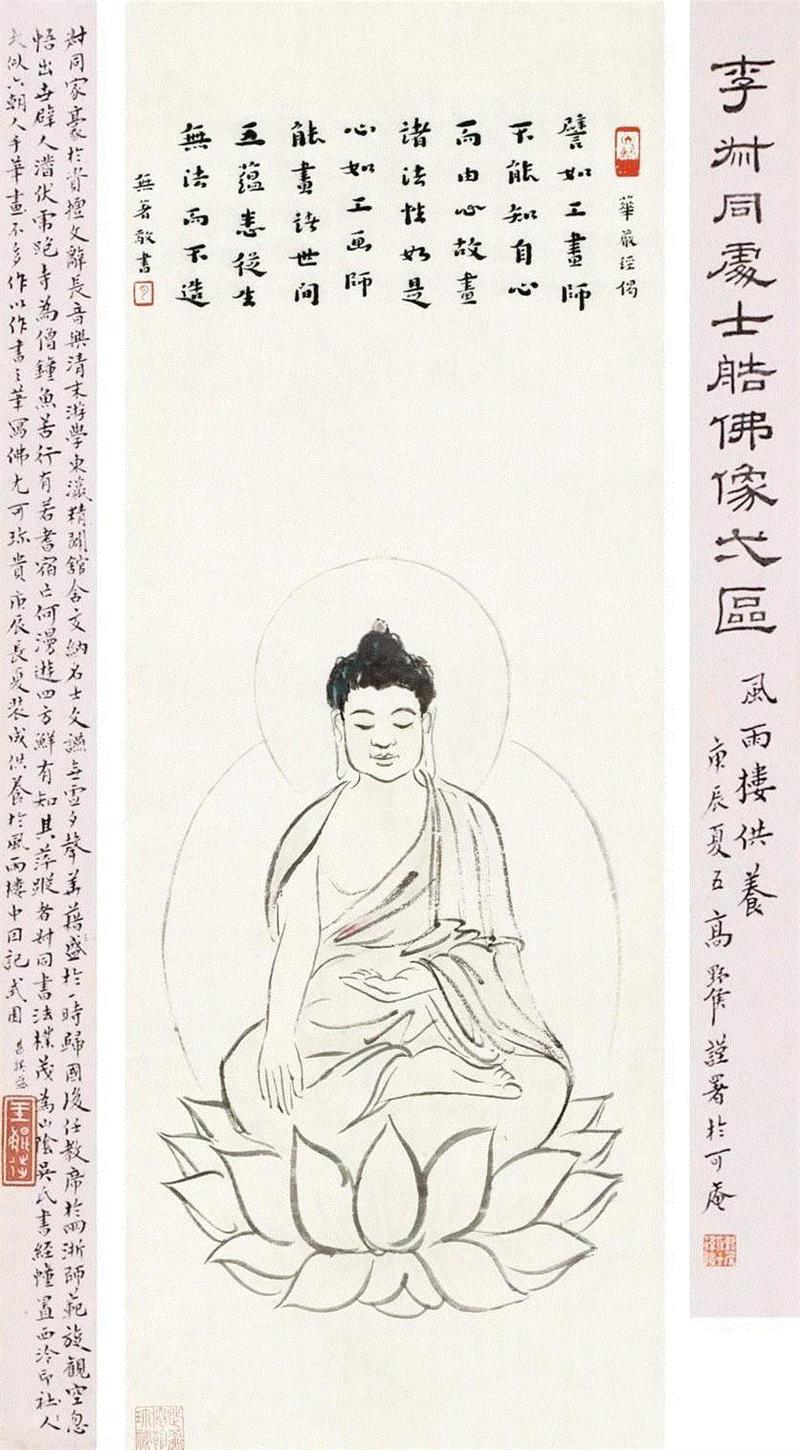 李叔同處士皓佛像之區
風雨樓供養
庚辰夏五高野侯謹署於可庵
華嚴經偈
譬如工畫師
不能知自心
而由心故畫
諸法性如是
心如工画師
能畫諸世间
五蘊悉從生
無法而不造
無著敬書
叔同家豪於貲擅文辭長音樂清末游學東瀛精闢舘舍交納名士文讌無虚夕聲華藉盛於一時歸國後任教席於兩浙師範旋觀空忽
悟出去辟人潛伏虎跑寺為僧鐘魚苦行有若耆宿亡何漫遊四方鮮有知其萍蹤者叔同書法樸茂為山陰吳氏書經幢置西泠印社人
夫似六朝人手筆畫不多作以作書之筆寫佛尤可珍貴庚辰長夏裝成供養於風雨樓中因記